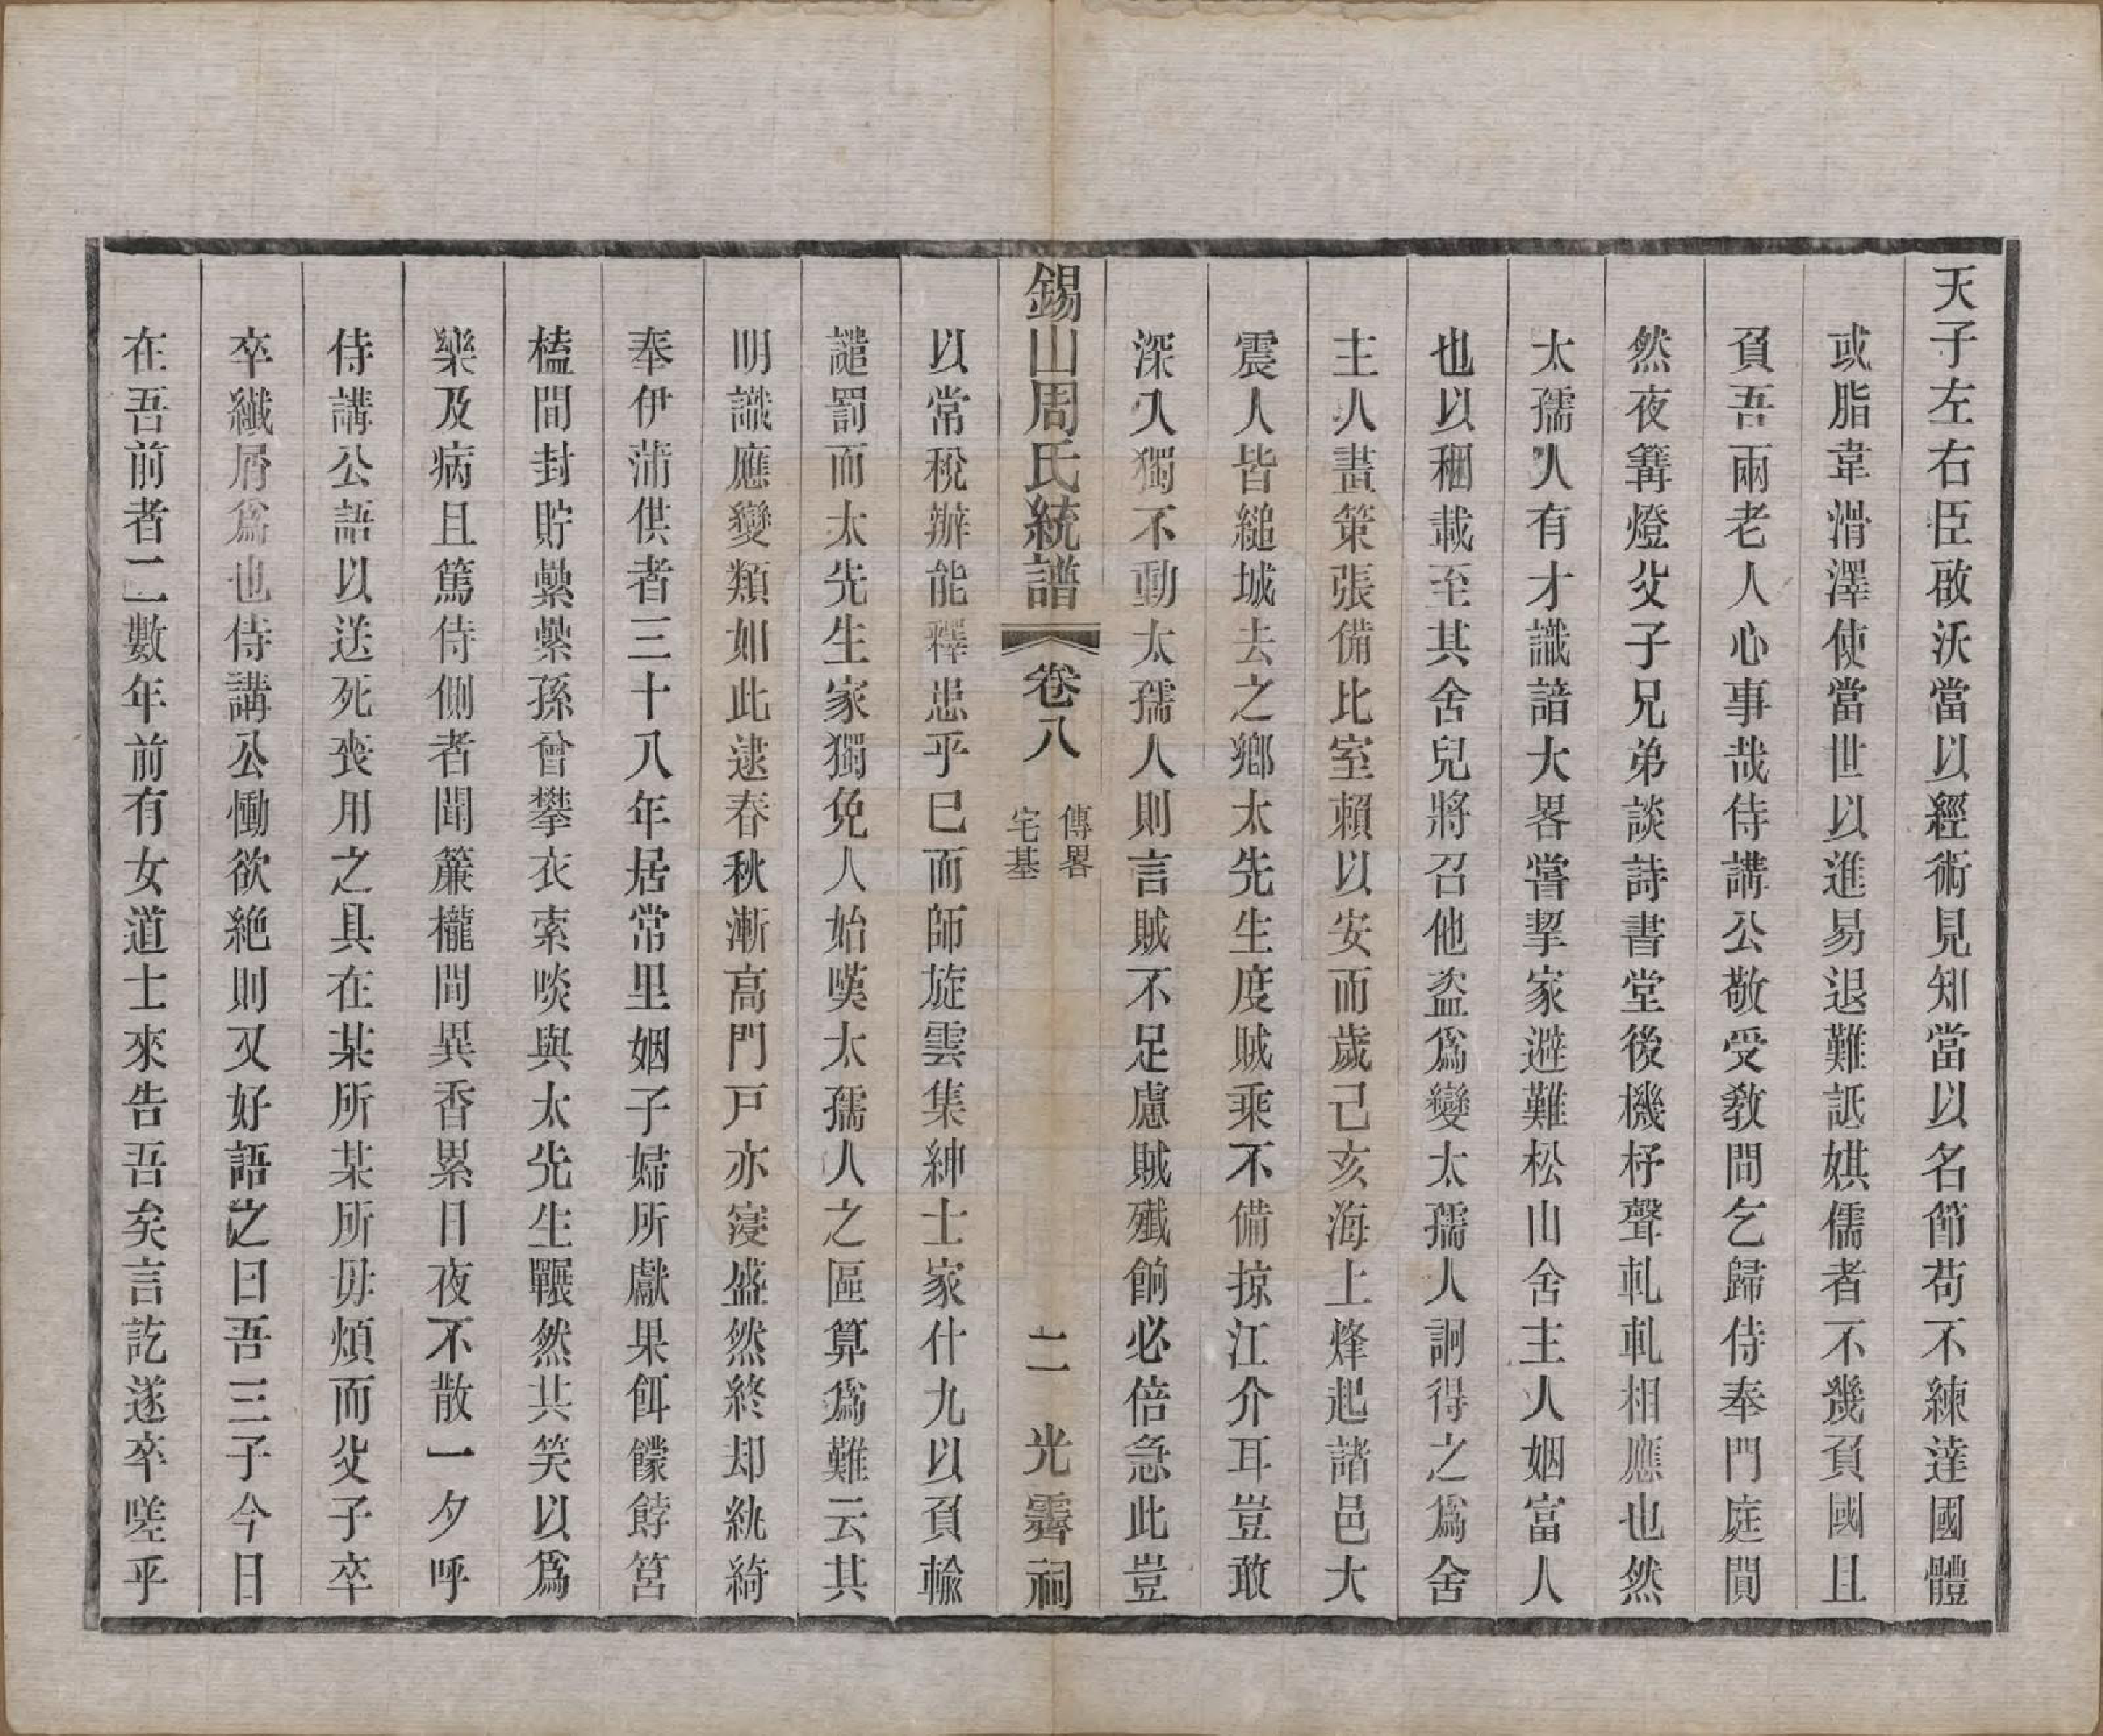 天子左右臣啟沃當以經術見知當以名節苟不練達國體
或脂韋滑澤使當世以進易退難詆娸儒者不幾負國且
負吾兩老人心事哉侍講公敬受教問乞歸侍奉門庭間
然夜篝燈父子兄弟談詩書堂後機杼聲軋軋相應也然
太孺人有才識諳大畧嘗挈家避難松山舍主人姻富人
也以稛載至其舍兒將召他盜為變太孺人詗得之為舍
主人畫策張備比室賴以安而歲己亥海上烽起諸邑大
震人皆縋城去之鄉太先生度賊乘不備掠江介耳豈敢
深入獨不動太孺人則言賊不足慮賊殲餉必倍急此豈
錫山周氏統譜
卷八
傳畧
宅基
二
光霽祠
以常稅辦能釋患乎巳而師旋雲集紳士家什九以負輸
譴罰而太先生家獨免人始嘆太孺人之區算為難云其
明識應變類如此逮春秋漸高門戸亦寖盛然終却紈綺
奉伊蒲供者三十八年居常里姻子婦所獻果餌饛餑筥
榼間封貯纍纍孫曾攀衣索啖與太先生囅然共笑以為
樂及病且篤侍側者聞簾櫳間異香累日夜不散一夕呼
侍講公語以送死喪用之具在某所某所毋煩而父子卒
卒纖屑為也侍講公慟欲絶則又好語之曰吾三子今日
在吾前者二數年前有女道士來告吾矣言訖遂卒嗟乎